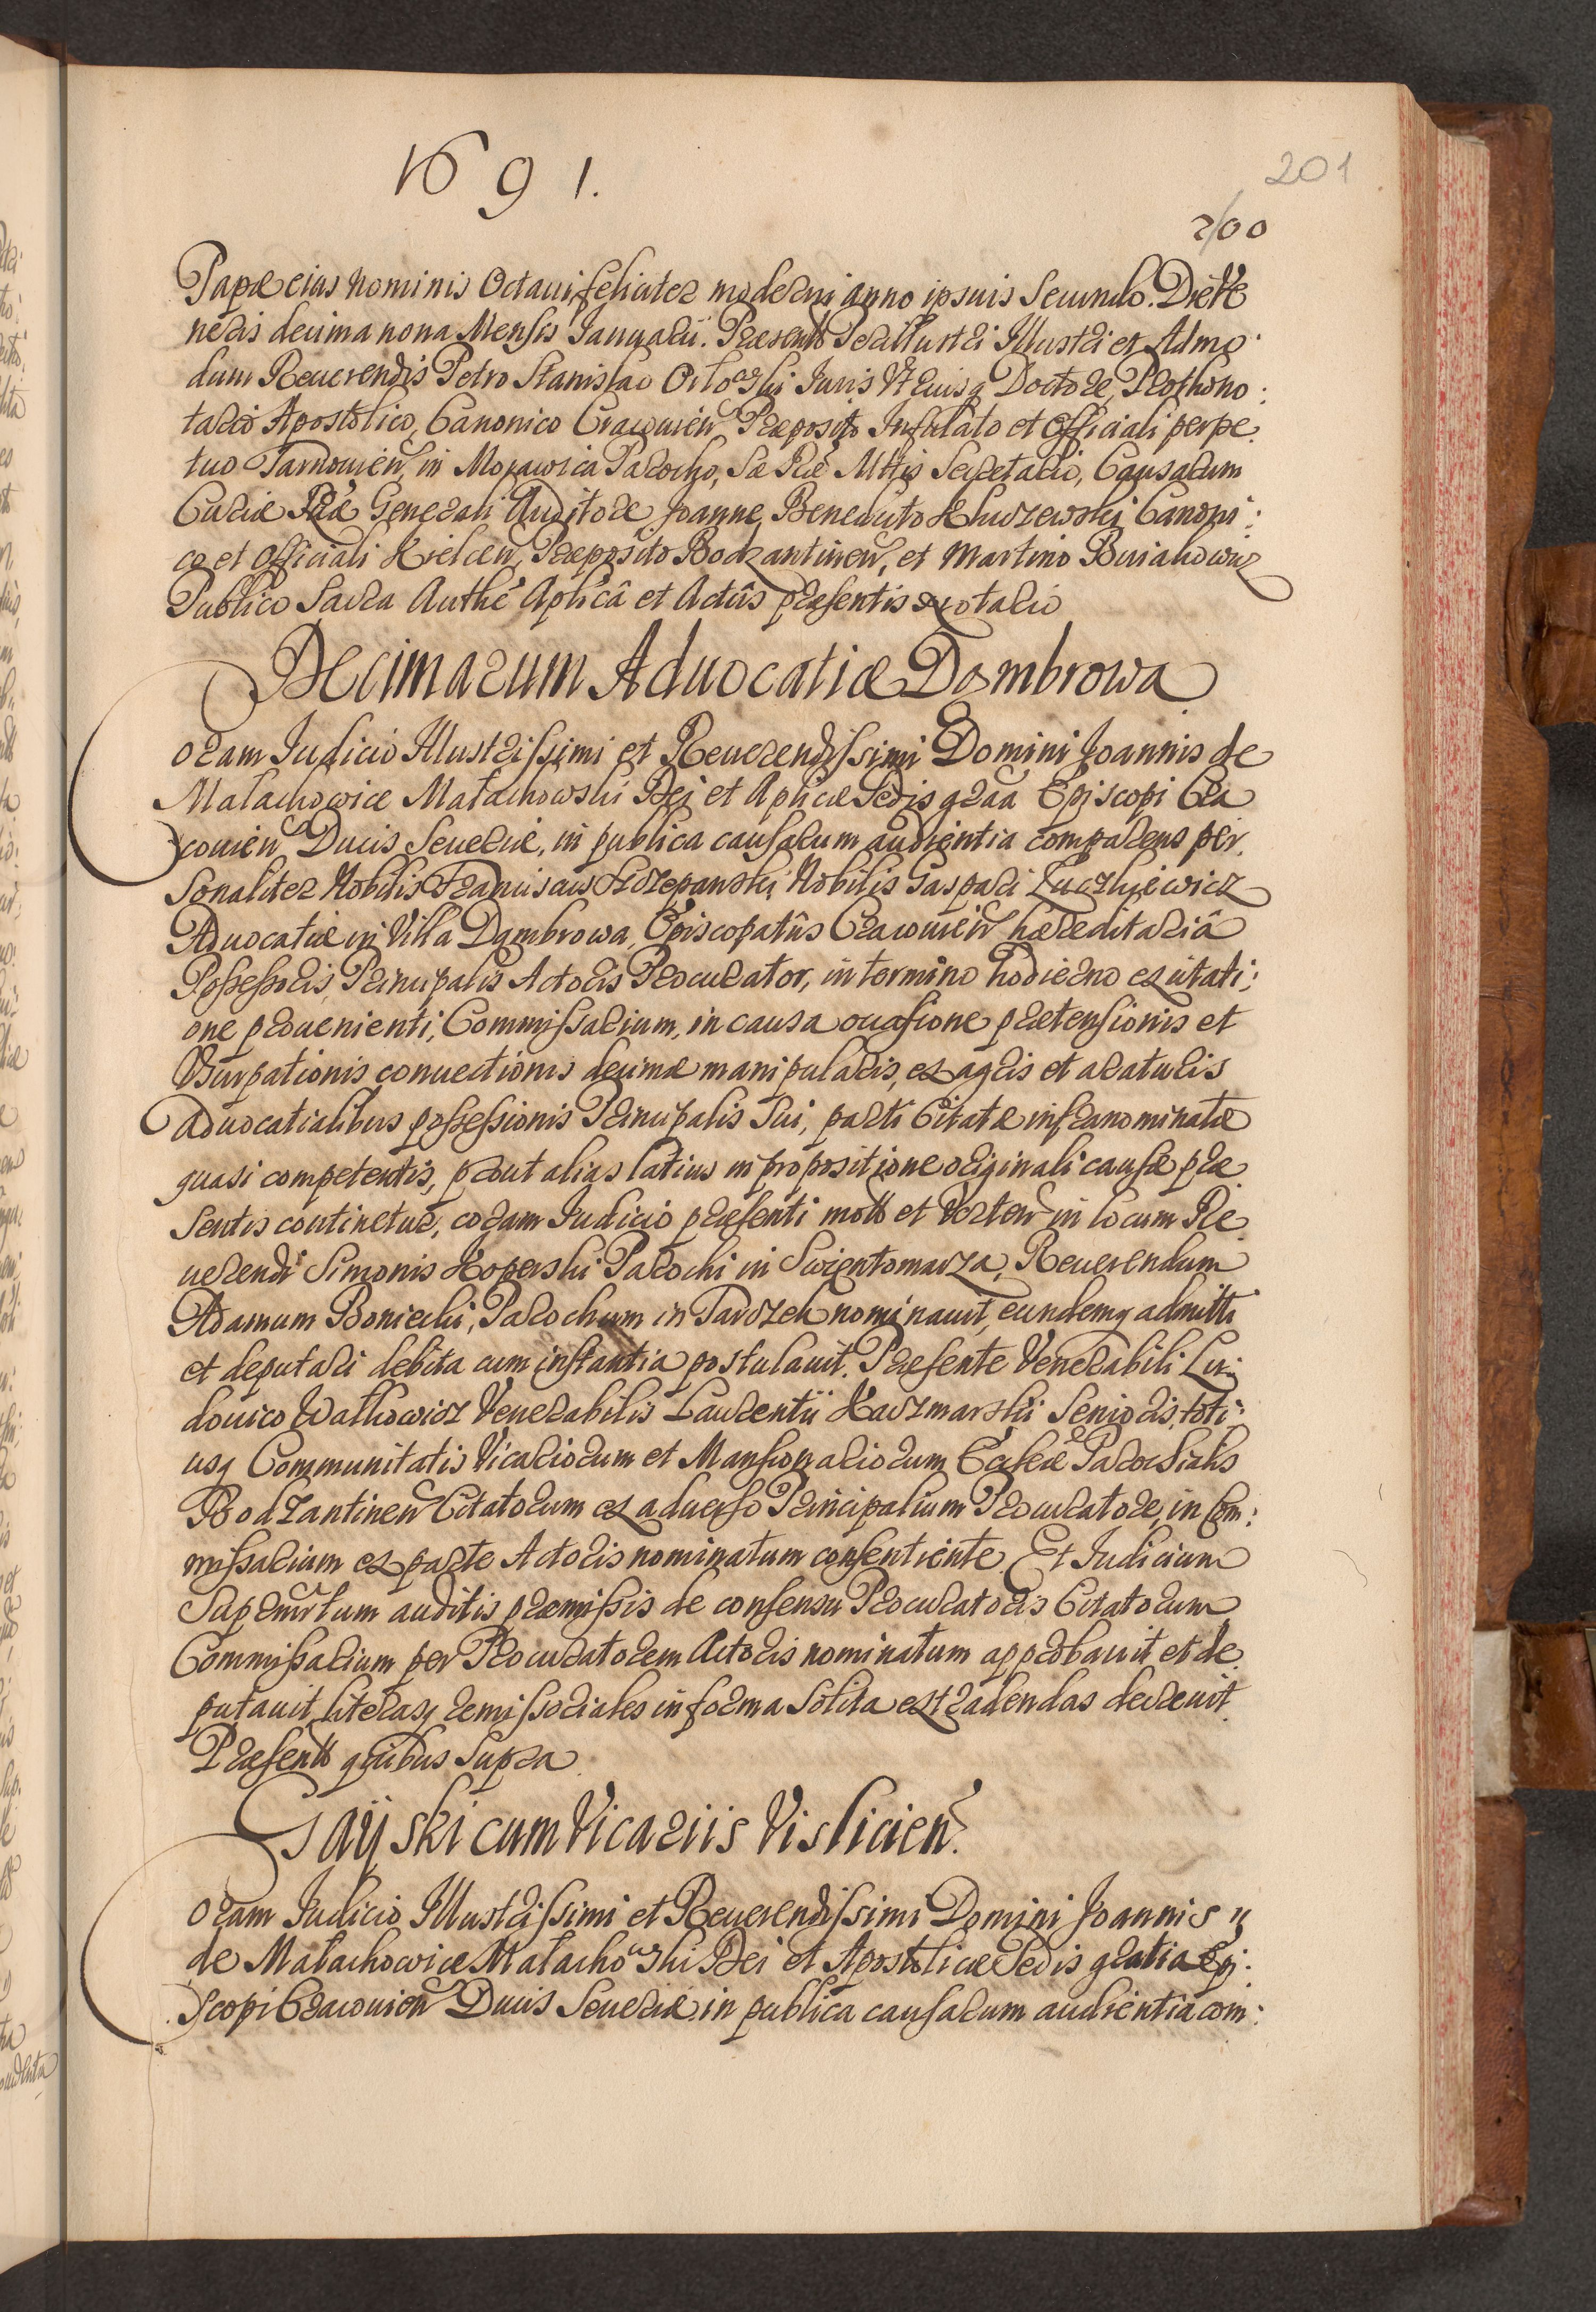 1691.
201
200
Papæ eius nominis Octaui, feliciter moderni anno ipsius Secundo. Die Ve
neris decima nona Mensis Januarii. Præsentt Perillustri Illustri et Admo:
dum Reuerendis Petro Stanislao Orłowski Iuris Vtriusq Doctore, Prothono:
tario Apostolico, Canonico Cracouien Præposito Infulato et Officiali perpe
tuo Tarnouien, in Morawica Parocho, Sæ Ræ Mttis Secretario, Causarum
Curiæ Generali Auditore Joanne Benedicto Kluczewski Canoni:
co et Officiali Kielcen, Præposito Bodzantinen, et Martino Buiakowicz
Publico Sacra Authe Aplicâ et Actûs præsentis Notario
Decimarum Aduocatiæ Dombrowa
Coram Iudicio Illustrissimi et Reuerendissimi Domini Joannis de
Małachowice Małachowski Dei et Aplicæ Sedis graa Episcopi Cra
couien Ducis Seueriæ, in publica causarum audientia comparens per
sonaliter Nobilis Franciscus Szczepanski Nobilis Gaspari Łuczkiewicz
Aduocatiæ in Villa Dąmbrowa, Episcopatûs Cracouien hæreditariâ
Possessoris, Principalis Actoris Procurator, in termino hodierno ex citati:
one prouenienti, Commissarium, in causa occasione prætensionis et
Vsurpationis conuectionis decimæ manipularis, ex agris et araturis
aduocatialibus possessionis Principalis Sui, parti Citatæ infranominatæ
quasi competentis, prout alias latius in propositione originali causæ præ
sentis continetur, coram Iudicio præsenti mott et Verten in locum Re
uerendi Simonis Koperski Parochi in Swientomarza, Reuerendum
Adamum Boniecki, Parochum in Tarczek nominauit, eundemq admitti
et deputari debita cum instantia postulauit. Præsente Venerabili Lu:
douico Walkowicz Venerabilis Laurentii Kaczmarski Senioris, toti:
usq Communitatis Vicariorum et Mansionariorum Ecclæ Parochialis
Bodzantinen Citatorum ex aduerso Principalium Procuratore, in Com:
missarium ex parte Actoris nominatum consentiente. Et Iudicium
Suprascrtum auditis præmissis de consensu Procuratoris Citatorum
Commissarium per Procuratorem Actoris nominatum approbauit et de
putauit, literasq remissoriales in forma Solita extradendas decreuit.
Præsentt quibus Supra
Gayski cum Vicariis Vislicien.
Coram Iudicio Illustrissimi et Reuerendissimi Domini Joannis
de Małachowice Małachowski Dei et Apostolicæ Sedis gratia Epi:
scopi Cracouien Ducis Seueriæ in publica causarum audientia com: